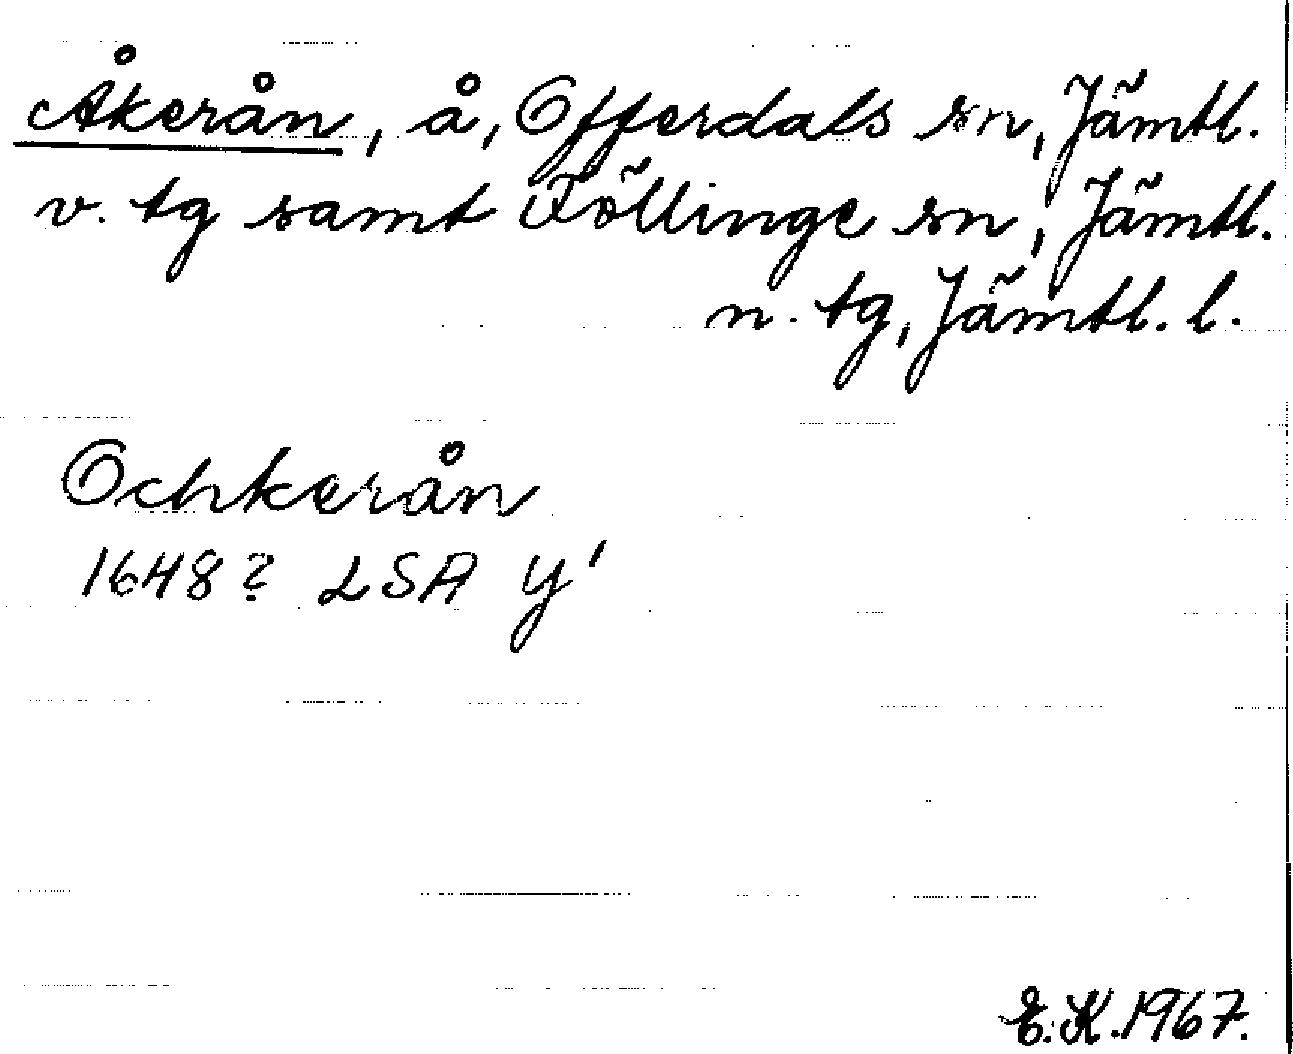 Åkerån, å, Offerdals sn, Jämtl.
v. tg samt Föllinge sn, Jämtl.
n. tg, Jämtl. l.
Ochkerån
1648? LSA Y'
E.K. 1967.